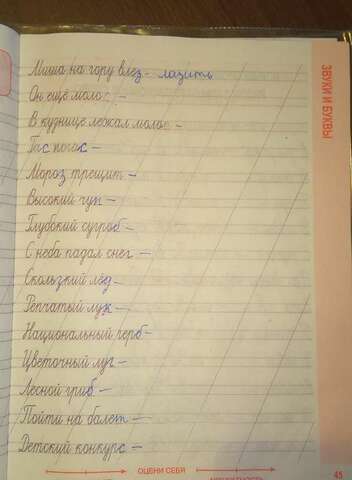 Миша на гору влез - лазить
Он ещё молод -
В кузнице лежал молот -
Гас погас -
Мороз трещит -
Высокий чуп -
Глубокий сугроб -
С неба падал снег -
Скользкий лёд -
Репчатый лук -
Национальный герб -
Цветочный луг -
Лесной гриб -
Пойти на балет -
Детский конкурс -
ЗВУКИ И БУКВЫ
ОЦЕНИ СЕБЯ
45